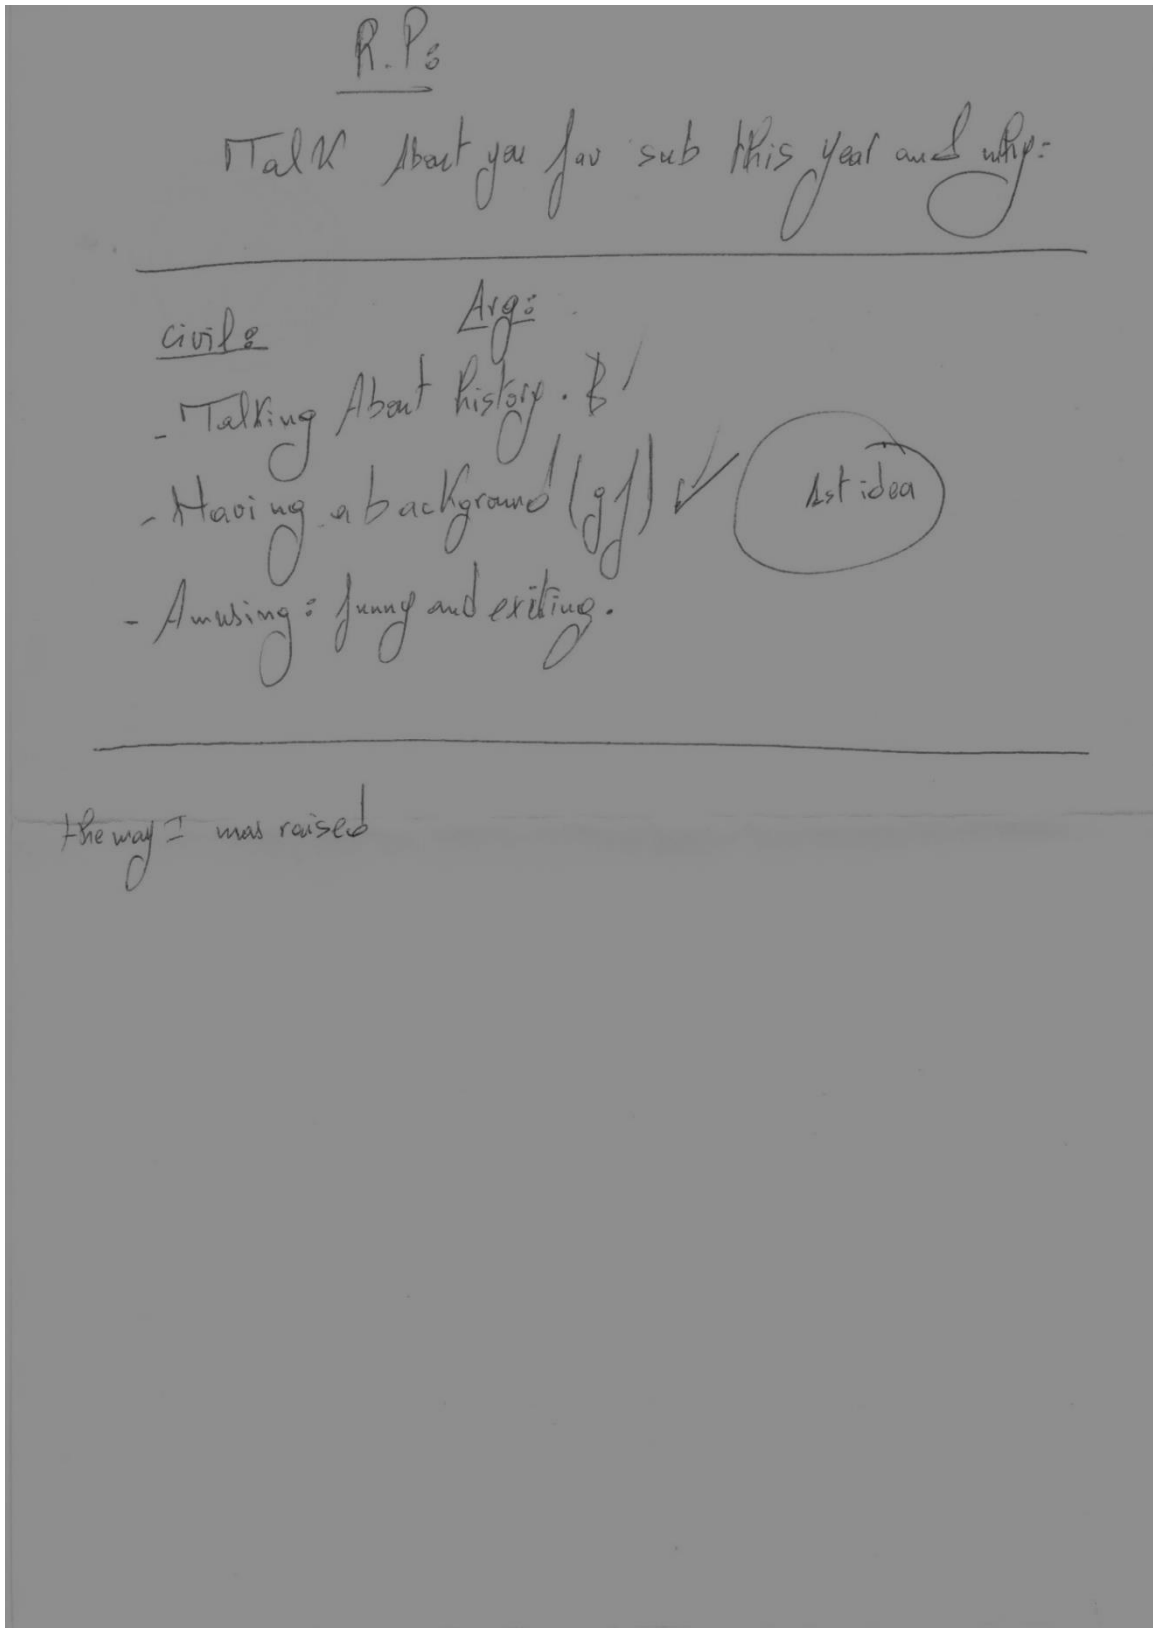 R.P:
Talk About you fav sub this year and why:
Arg:
civil:
- Talking About history.
- Having a background (gf) ✓
1st idea
- Amusing: funny and exiting.
the way I was raised